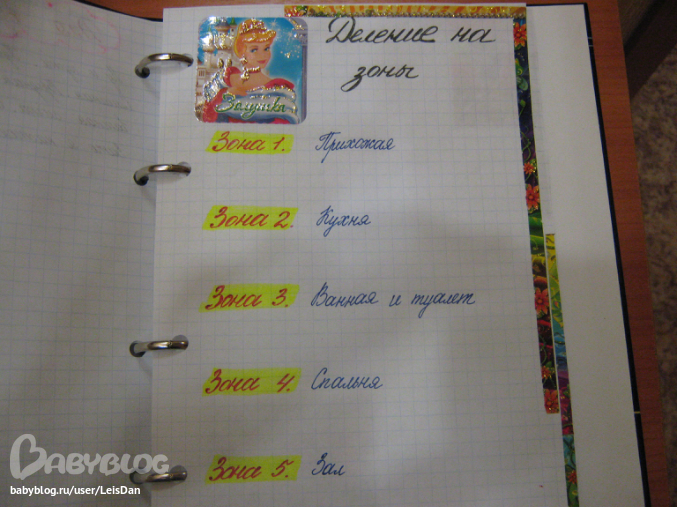 Деление на
зоны
Золушка
Зона 1. Прихожая
Зона 2. Кухня
Зона 3. Ванная и туалет
Зона 4. Спальня
Зона 5. Зал
BABYBLOG
babyblog.ru/user/LeisDan